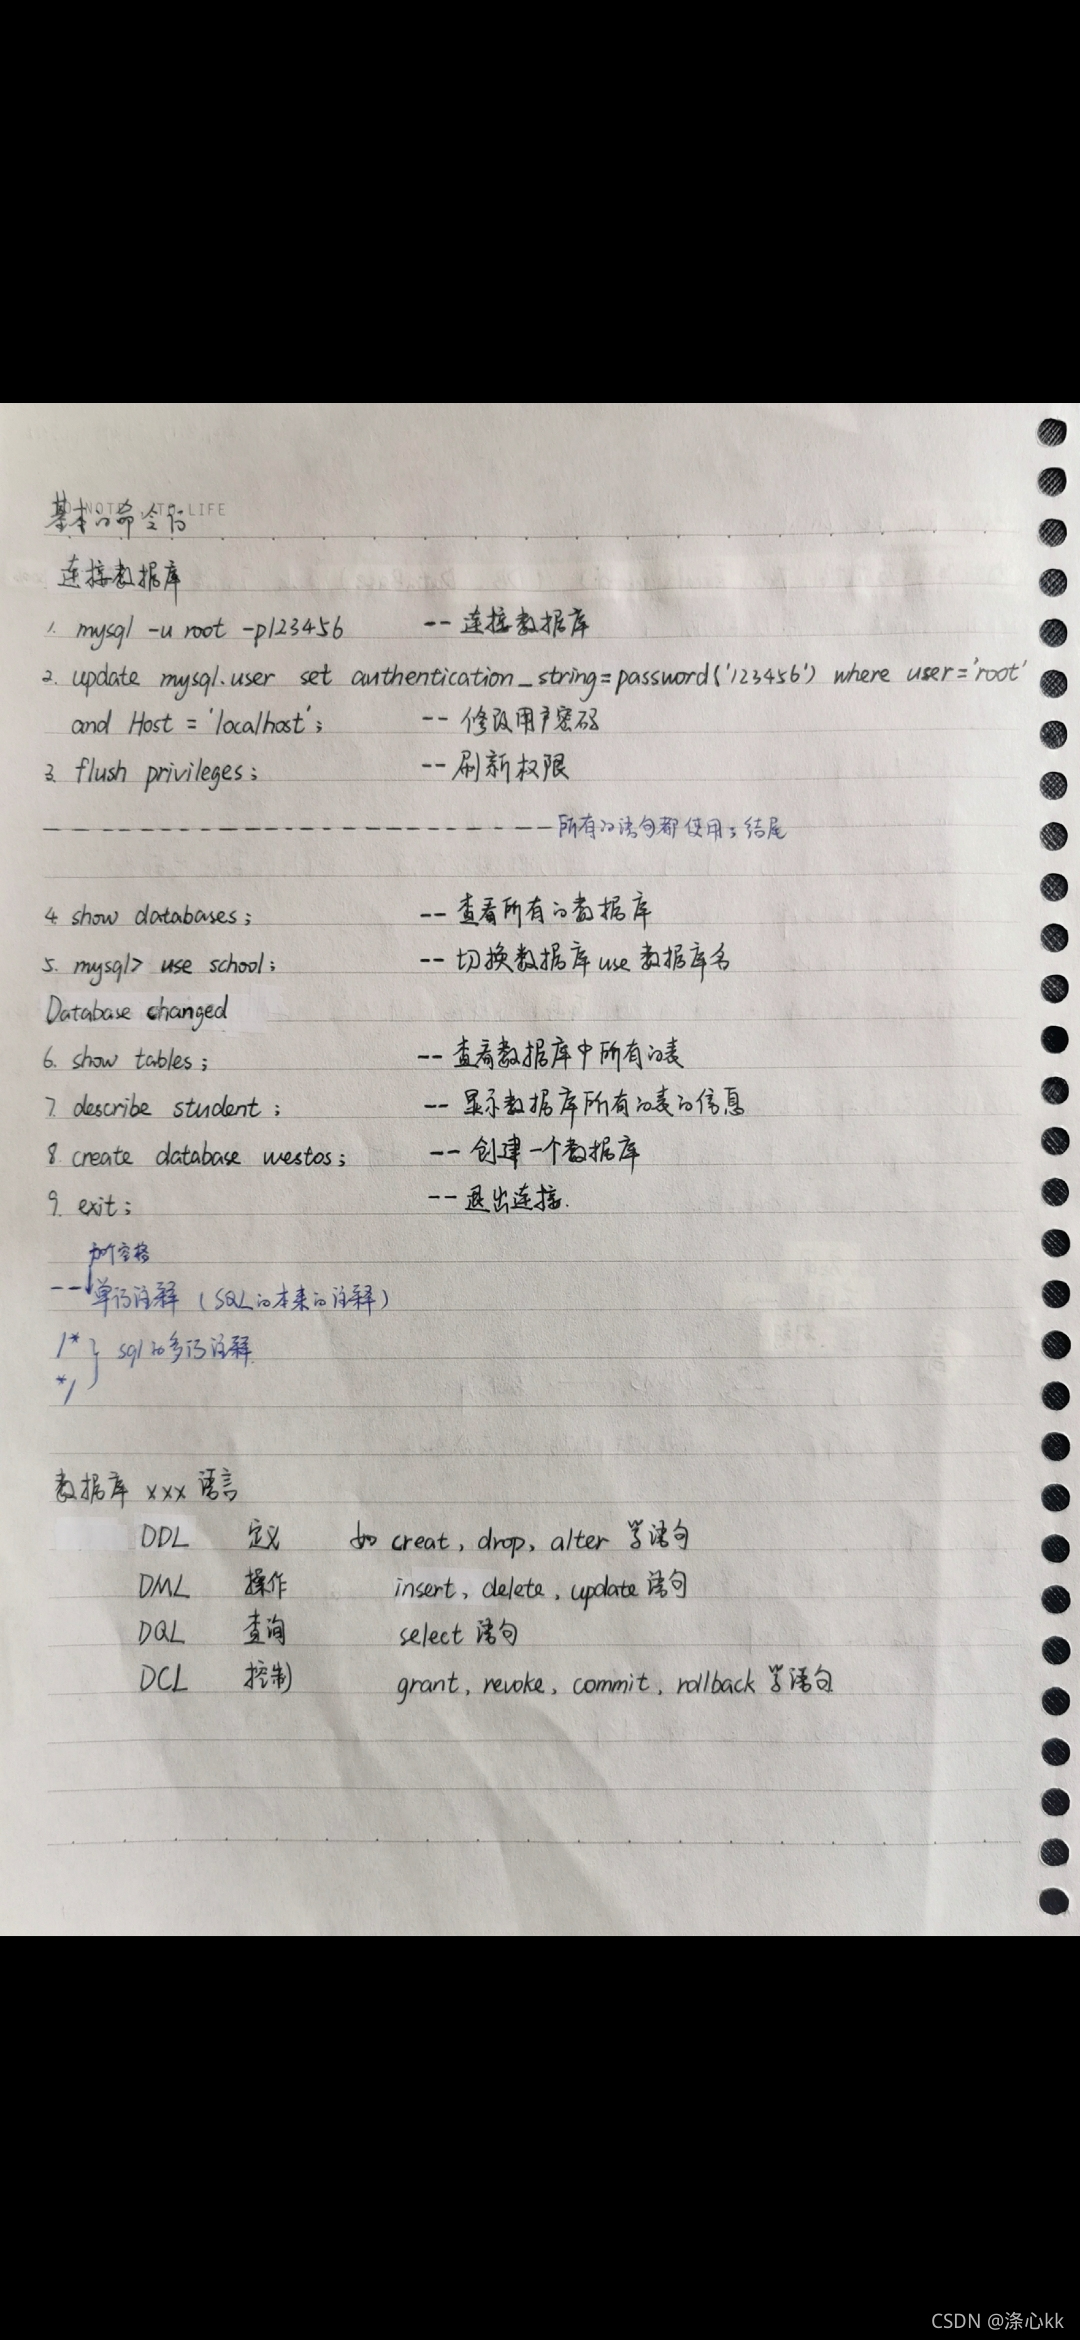 基本的命令行
NOT LIFE
连接数据库
1. mysql -u root -p123456 -- 连接数据库
2. update mysql.user set authentication_string=password('123456') where user='root'
and Host = 'localhost'; -- 修改用户密码
3. flush privileges; -- 刷新权限
------------------------ 所有的语句都使用;结尾
4 show databases; -- 查看所有的数据库
5. mysql> use school; -- 切换数据库 use 数据库名
Database changed
6. show tables; -- 查看数据库中所有的表
7. describe student; -- 显示数据库所有的表的信息
8. create database westos; -- 创建一个数据库
9. exit; -- 退出连接.
加个空格
-- 单行注释 (SQL的本来的注释)
/* } sql的多行注释
*/
数据库 xxx 语言
DDL 定义 如 creat, drop, alter 等语句
DML 操作 insert, delete, update 语句
DQL 查询 select 语句
DCL 控制 grant, revoke, commit, rollback 等语句
CSDN @涤心kk